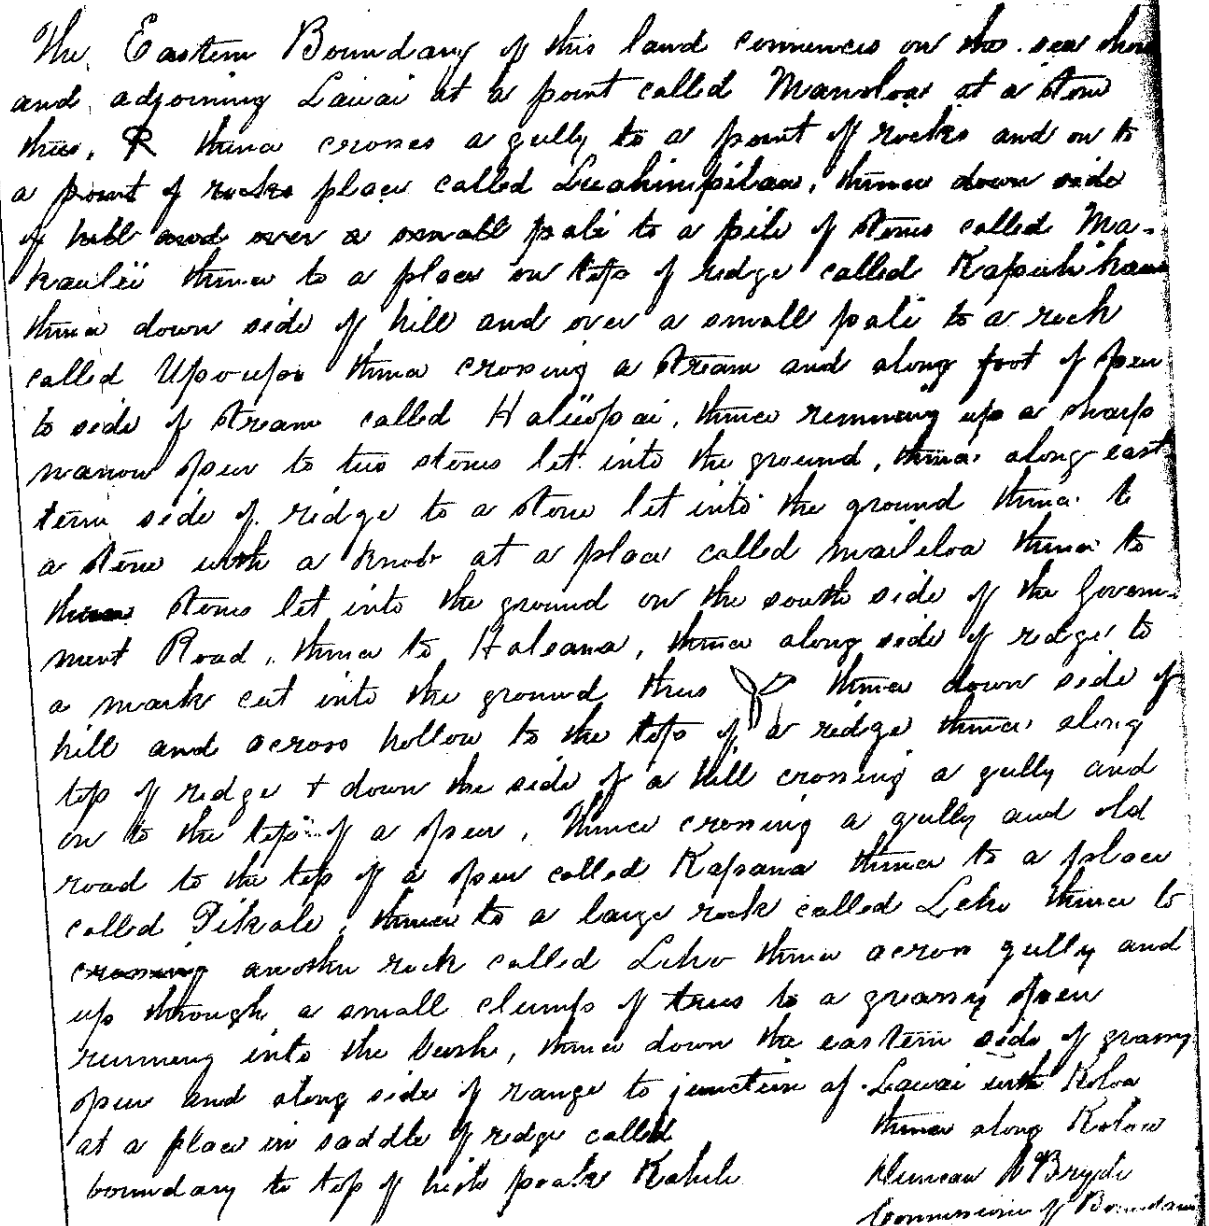 The Eastern Boundary of this land commences on the sea shore
and adjoining Lawai at a point called Manoloa at a stone
thus, R thence crosses a gully to a point of rocks and on to
a point of rocks place called thence down side
of hill and over a small pali to a pile of stones called Ma-
kaulii thence to a place on top of ridge called
thence down side of hill and over a small pali to a rock
called Upoupoi thence crossing a stream and along foot of spur
to side of stream called Haliiopai, thence running up a sharp
narrow spur to two stones let into the ground, thence along east-
tern side of ridge to a stone let into the ground thence to
a stone with a knob at a place called Maileloa thence to
three stones let into the ground on the south side of the Govern-
ment Road, thence to thence along side of ridge to
a mark cut into the ground thus thence down side of
hill and across hollow to the top of a ridge thence along
top of ridge + down the side of a hill crossing a gully and
on to the top of a spur, thence crossing a gully and old
road to the top of a spur called Kapana thence to a place
called Pikale, thence to a large rock called Leho thence to
crossing another rock called Leho thence across gully and
up through a small clump of trees to a grassy spur
running into the bush, thence down the eastern side of grassy
spur and along side of range to junction of Lawai with Koloa
at a place in saddle of ridge called thence along Koloa
boundary to top of high peak Kahili
Duncan McBryde
Commissioner of Boundaries